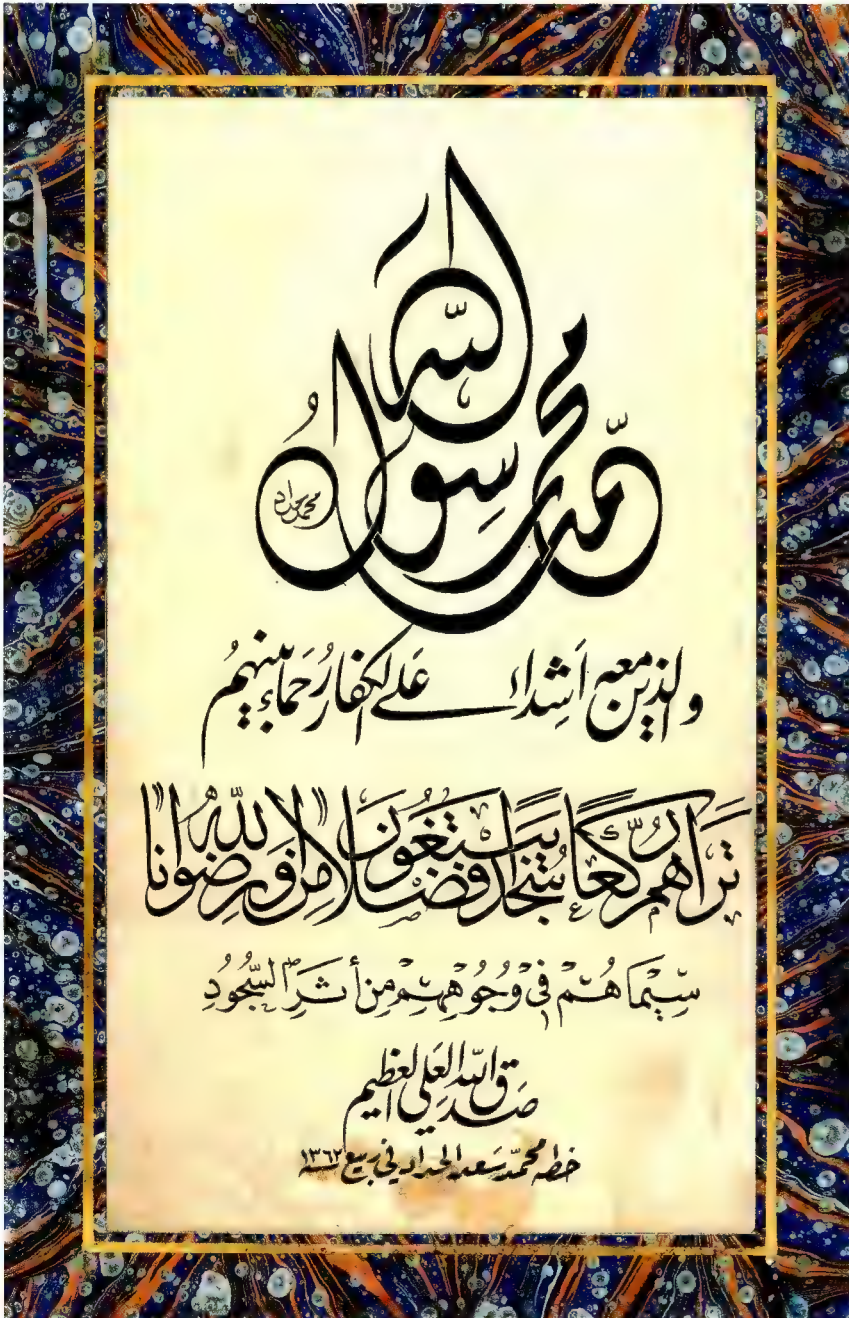 محمد رسول الله
محمد حداد
والذين معه أشداء على الكفار رحماء بينهم
تَرَاهُمْ رُكَّعًا سُجَّدًا يَبْتَغُونَ فَضْلًا مِنَ اللَّهِ وَرِضْوَانًا
سِيْمَاهُمْ فِي وُجُوهِهِمْ مِنْ أَثَرِ السُّجُودِ
صدق الله العلي العظيم
خطه محمد سعد الحداد في ربيع سنة ١٣٦٢